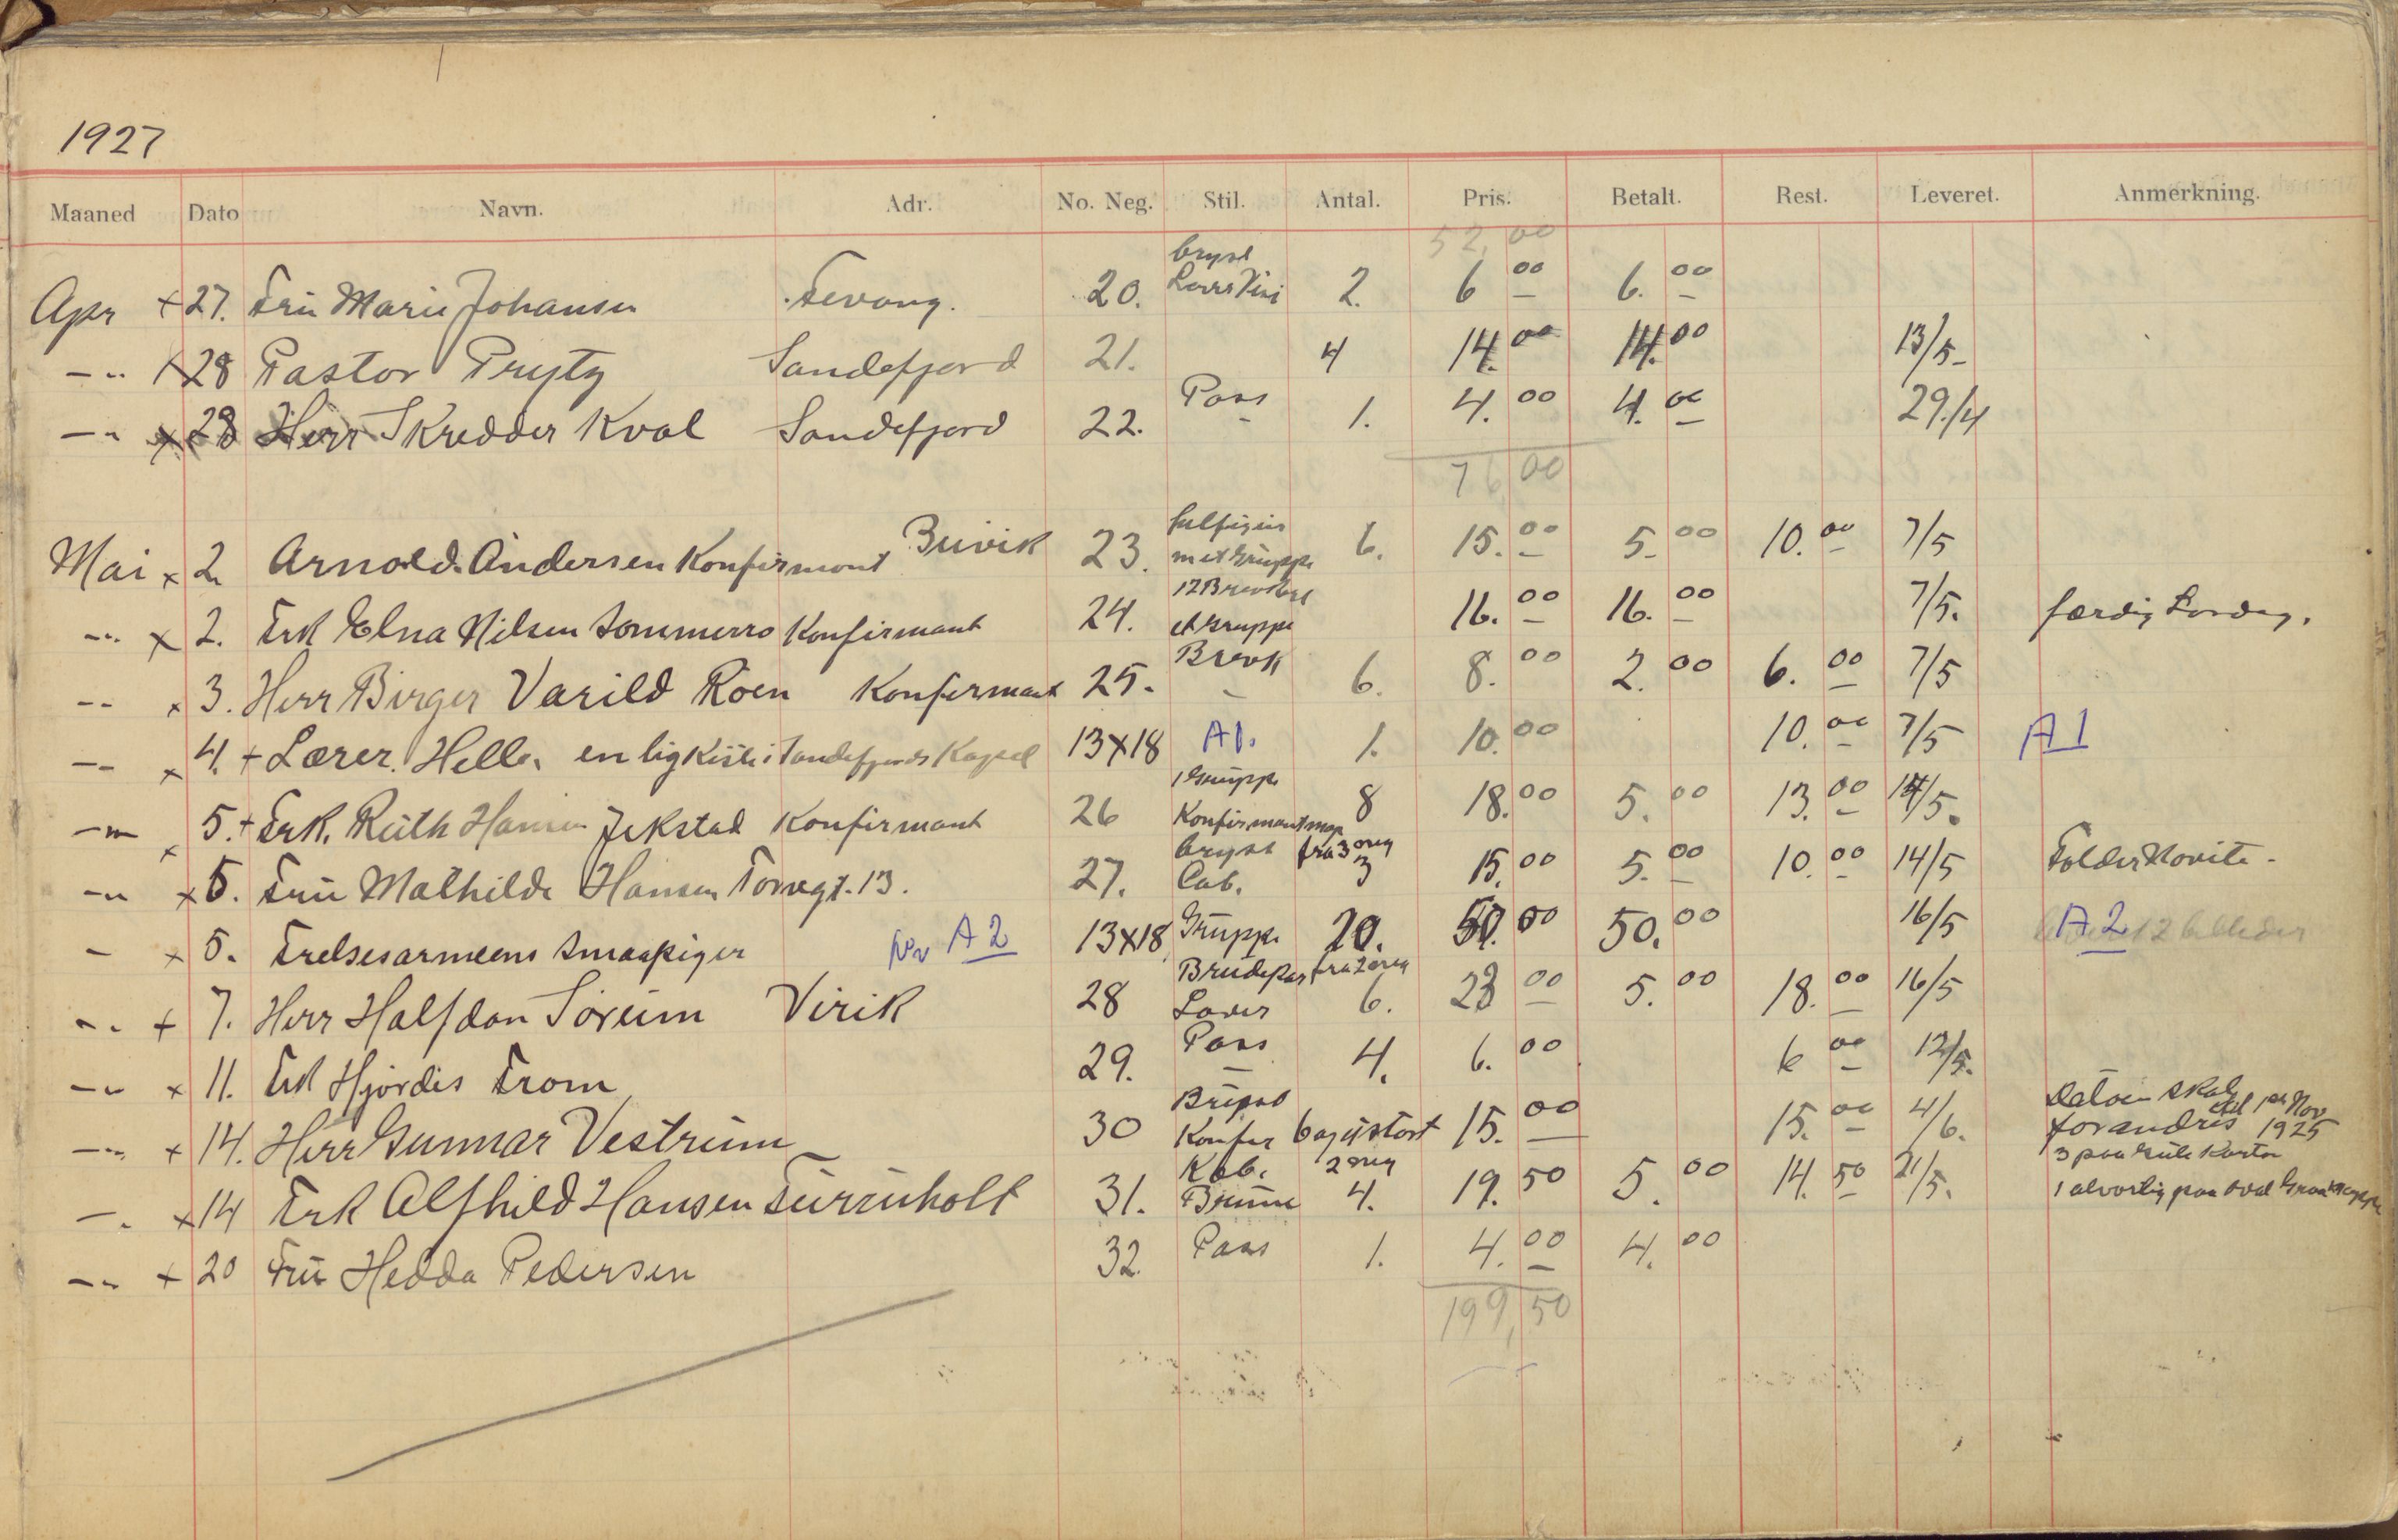 1927
Maaned Dato Navn. Adr. No. Neg. Stil. Antal. Pris. Betalt. Rest. Leveret. Anmerkning.
52,00
bryst
Apr x 27. Fru Marie Johansen Fevang. 20. 2. 6 00 6. 00
-"- x 28 Pastor Prytz Sandefjord 21. 4 14. 00 14. 00 13/5-
-"- x 28 Herr Skredder Kval Sandefjord 22. Pass 1. 4. 00 4. 00 29./4
76 00
helfigur
Mai x 2. Arnold. Andersen Konfirmant Buvik 23. met Gruppe 6. 15. 00 5. 00 10. 00 7/5
12 Brevkort
-"- x 2. Frk Elna Nilsen Sommerro Konfirmant 24. et Gruppe 16. 00 16. 00 7/5. færdig Lørdag.
-"- x 3. Herr Birger Varild Roen Konfirmant 25. Brevk 6. 8. 00 2. 00 6. 00 7/5
-"- x 4. + Lærer. Helle. en lig Kiste i Sandefjords Kapel 13x18 A1. 1. 10. 00 10. 00 7/5 A1
1 Gruppe
-"- x 5. + Frk. Ruth Hansen Jekstad Konfirmant 26 Konfirmantmap 8 18. 00 5. 00 13. 00 14/5.
bryst fra 3 neg
-"- x 5. Fru Mathilde Hansen Torvegt. 13. 27. Cab. 3 15. 00 5. 00 10. 00 14/5 Folder Hvite -
- x 5. Frelsesarmeens Smaapiger Nr A2 13x18 Gruppe 20. 50. 00 50. 00 16/5 A2 12 billeder
Brudepar fra 2 neg
-"- + 7. Herr Halfdan Sørum Virik 28 6. 23 00 5. 00 18. 00 16/5
-"- x 11. Frk Hjørdis From 29. Pass 4. 6. 00 6 00 12/5.
Datoen skal
-"- x 14. Herr Gunnar Vestrum 30 Konfir 15. 00 15. 00 4/6. forandres til Nov 1925
Kab. 2 neg 3 paa Gule Karton
-"- x 14 Frk Alfhild Hansen Furruholt 31. Brune 4. 19. 50 5. 00 14. 50 21/5. 1 alvorlig paa oval
-"- + 20 Fru Hedda Pedersen 32. Pass 1. 4. 00 4. 00
199,50